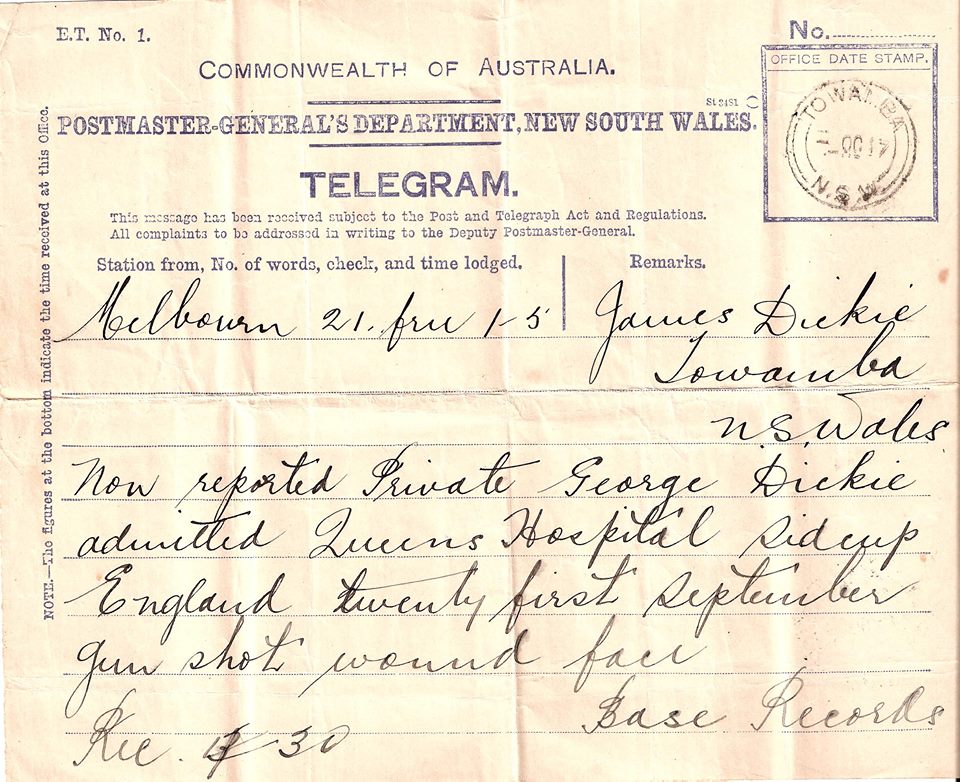 E.T. No. 1.
No.
COMMONWEALTH OF AUSTRALIA.
OFFICE DATE STAMP.
St 3481
POSTMASTER-GENERAL'S DEPARTMENT, NEW SOUTH WALES.
TOWAMBA
OC 17
N.S.W
TELEGRAM.
This message has been received subject to the Post and Telegraph Act and Regulations.
All complaints to be addressed in writing to the Deputy Postmaster-General.
Station from, No. of words, check, and time lodged.
Remarks.
Melbourn 21. 1-5
James Dickie
Towamba
N.S. Wales
Now reported Private George Dickie
admitted Queens Hospital Sidcup
England twenty first September
gun shot wound face
Base Records
Rec. 30
NOTE.—The figures at the bottom indicate the time received at this Office.